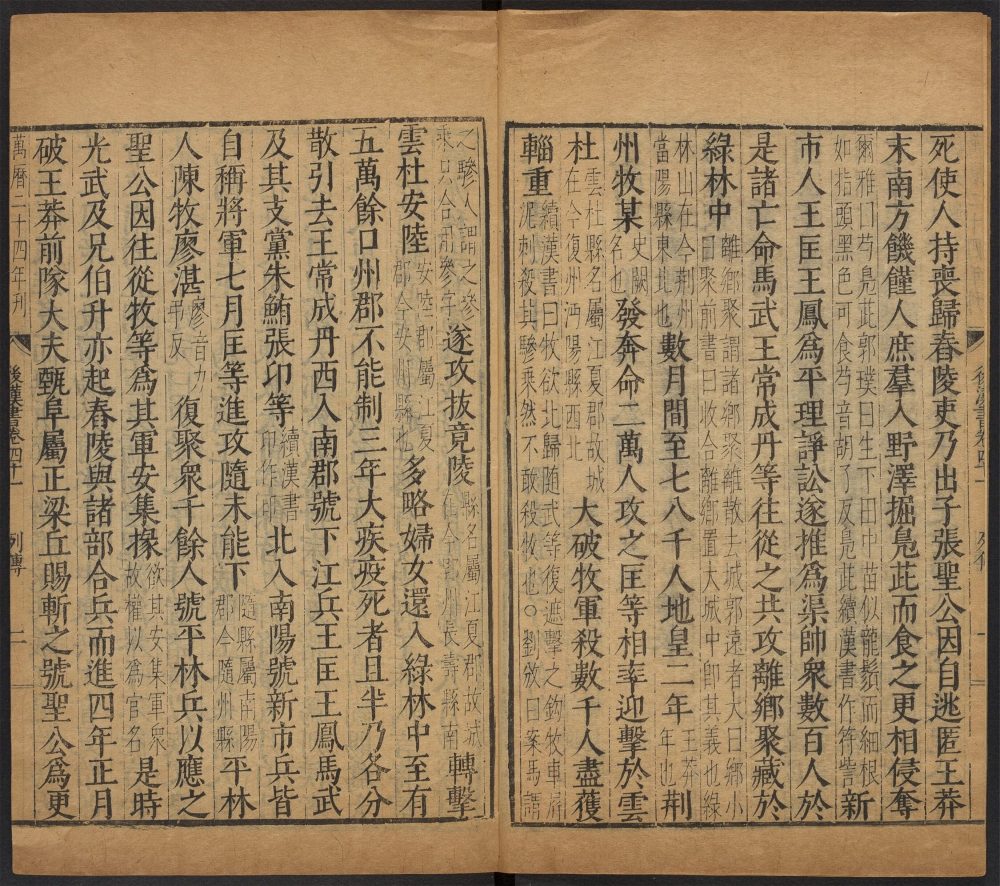 死使人持喪歸舂陵吏乃出子張聖公因自逃匿王莽
末南方饑饉人庶羣入野澤掘鳧茈而食之更相侵奪
爾雅曰芍鳧茈郭璞曰生下田中苗似龍鬚而細根
如指頭黑色可食芍音胡了反鳧茈續漢書作符訾
新
市人王匡王鳳爲平理諍訟遂推爲渠帥衆數百人於
是諸亡命馬武王常成丹等往從之共攻離鄉聚藏於
綠林中
離鄉聚謂諸鄉聚離散去城郭遠者大曰鄉小
曰聚前書曰收合離鄉置大城中卽其義也綠
林山在今荆州
當陽縣東北也
數月間至七八千人地皇二年
王莽
年也
荆
州牧某
史闕
名也
發奔命二萬人攻之匡等相率迎擊於雲
杜
雲杜縣名屬江夏郡故城
在今復州沔陽縣西北
大破牧軍殺數千人盡獲
輜重
續漢書曰牧欲北歸隨武等復遮擊之鉤牧車屏
泥刺殺其驂乘然不敢殺牧也○劉攽曰案馬謂
之驂人謂之參
乘只合用參字
遂攻拔竟陵
縣名屬江夏郡故城
在今郢州長壽縣南
轉擊
雲杜安陸
安陸郡屬江夏
郡今安州縣也
多略婦女還入綠林中至有
五萬餘口州郡不能制三年大疾疫死者且半乃各分
散引去王常成丹西入南郡號下江兵王匡王鳳馬武
及其支黨朱鮪張卬等
續漢書
卬作印
北入南陽號新市兵皆
自稱將軍七月匡等進攻隨未能下
隨縣屬南陽
郡今隨州縣
平林
人陳牧廖湛
廖音力
弔反
復聚衆千餘人號平林兵以應之
聖公因往從牧等爲其軍安集掾
欲其安集軍衆
故權以爲官名
是時
光武及兄伯升亦起舂陵與諸部合兵而進四年正月
破王莽前隊大夫甄阜屬正梁丘賜斬之號聖公爲更
萬曆二十四年刊
後漢書卷四十一
列傳
二